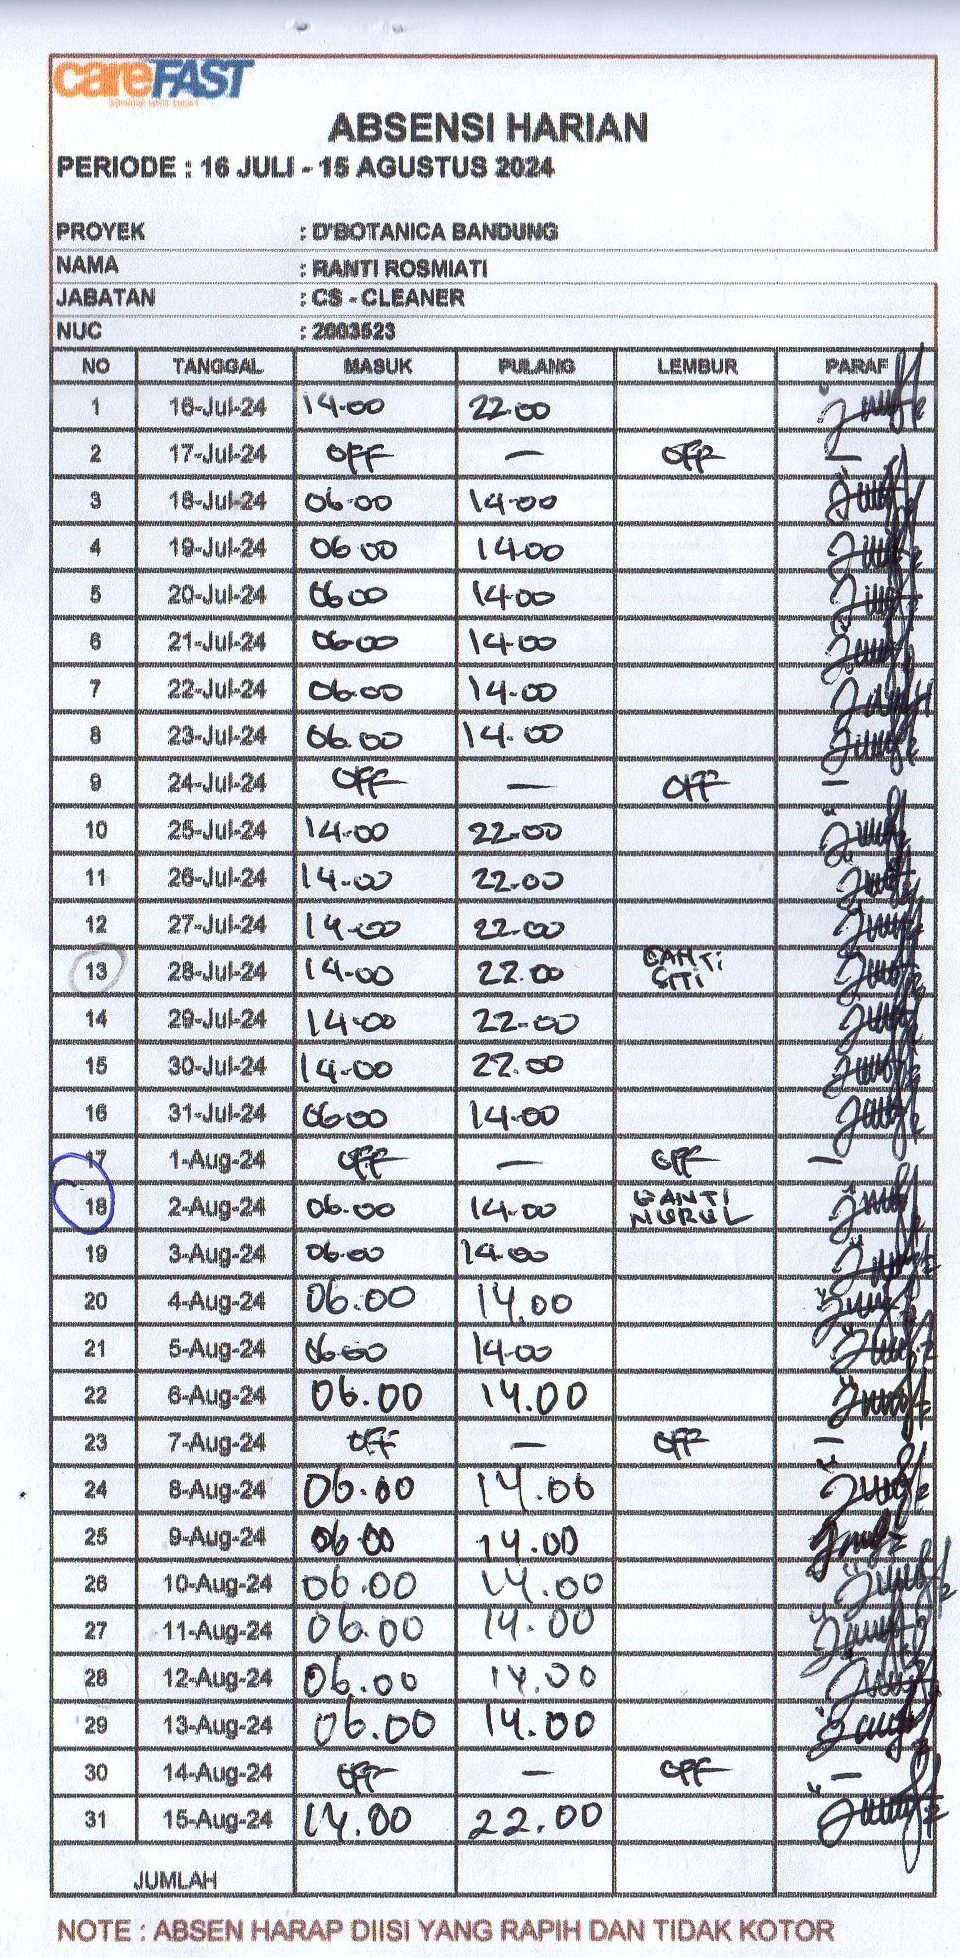 careFAST
ABSENSI HARIAN
PERIODE : 16 JULI - 15 AGUSTUS 2024
PROYEK : D'BOTANICA BANDUNG
NAMA : RANTI ROSMIATI
JABATAN : CS - CLEANER
NUC : 2003523
NO TANGGAL MASUK PULANG LEMBUR PARAF
1 16-Jul-24 14.00 22.00
2 17-Jul-24 OFF — OFF —
3 18-Jul-24 06.00 14.00
4 19-Jul-24 06.00 14.00
5 20-Jul-24 06.00 14.00
6 21-Jul-24 06.00 14.00
7 22-Jul-24 06.00 14.00
8 23-Jul-24 06.00 14.00
9 24-Jul-24 OFF — OFF —
10 25-Jul-24 14.00 22.00
11 26-Jul-24 14.00 22.00
12 27-Jul-24 14.00 22.00
13 28-Jul-24 14.00 22.00 GANTI SITI
14 29-Jul-24 14.00 22.00
15 30-Jul-24 14.00 22.00
16 31-Jul-24 06.00 14.00
17 1-Aug-24 OFF — OFF —
18 2-Aug-24 06.00 14.00 GANTI NURUL
19 3-Aug-24 06.00 14.00
20 4-Aug-24 06.00 14.00
21 5-Aug-24 06.00 14.00
22 6-Aug-24 06.00 14.00
23 7-Aug-24 OFF — OFF —
24 8-Aug-24 06.00 14.00
25 9-Aug-24 06.00 14.00
26 10-Aug-24 06.00 14.00
27 11-Aug-24 06.00 14.00
28 12-Aug-24 06.00 14.00
29 13-Aug-24 06.00 14.00
30 14-Aug-24 OFF — OFF —
31 15-Aug-24 14.00 22.00
JUMLAH
NOTE : ABSEN HARAP DIISI YANG RAPIH DAN TIDAK KOTOR